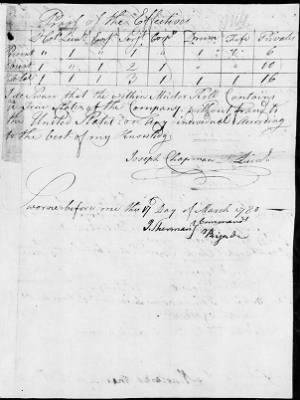 Proof of the Effectives
Present " 1 1 1 1 1 6
Absent 1 " 1 2 " " 10
Total 1 1 1 3 1 1 1 16
I do Swear that the within Muster Roll Contains
a True State of the Company without fraud to
the United States or Any individual According
to the best of my Knowledge
Joseph Chapman Lieut
Sworne before me this 17 Day of March 1780
I. Sherman Commandt
Brigade